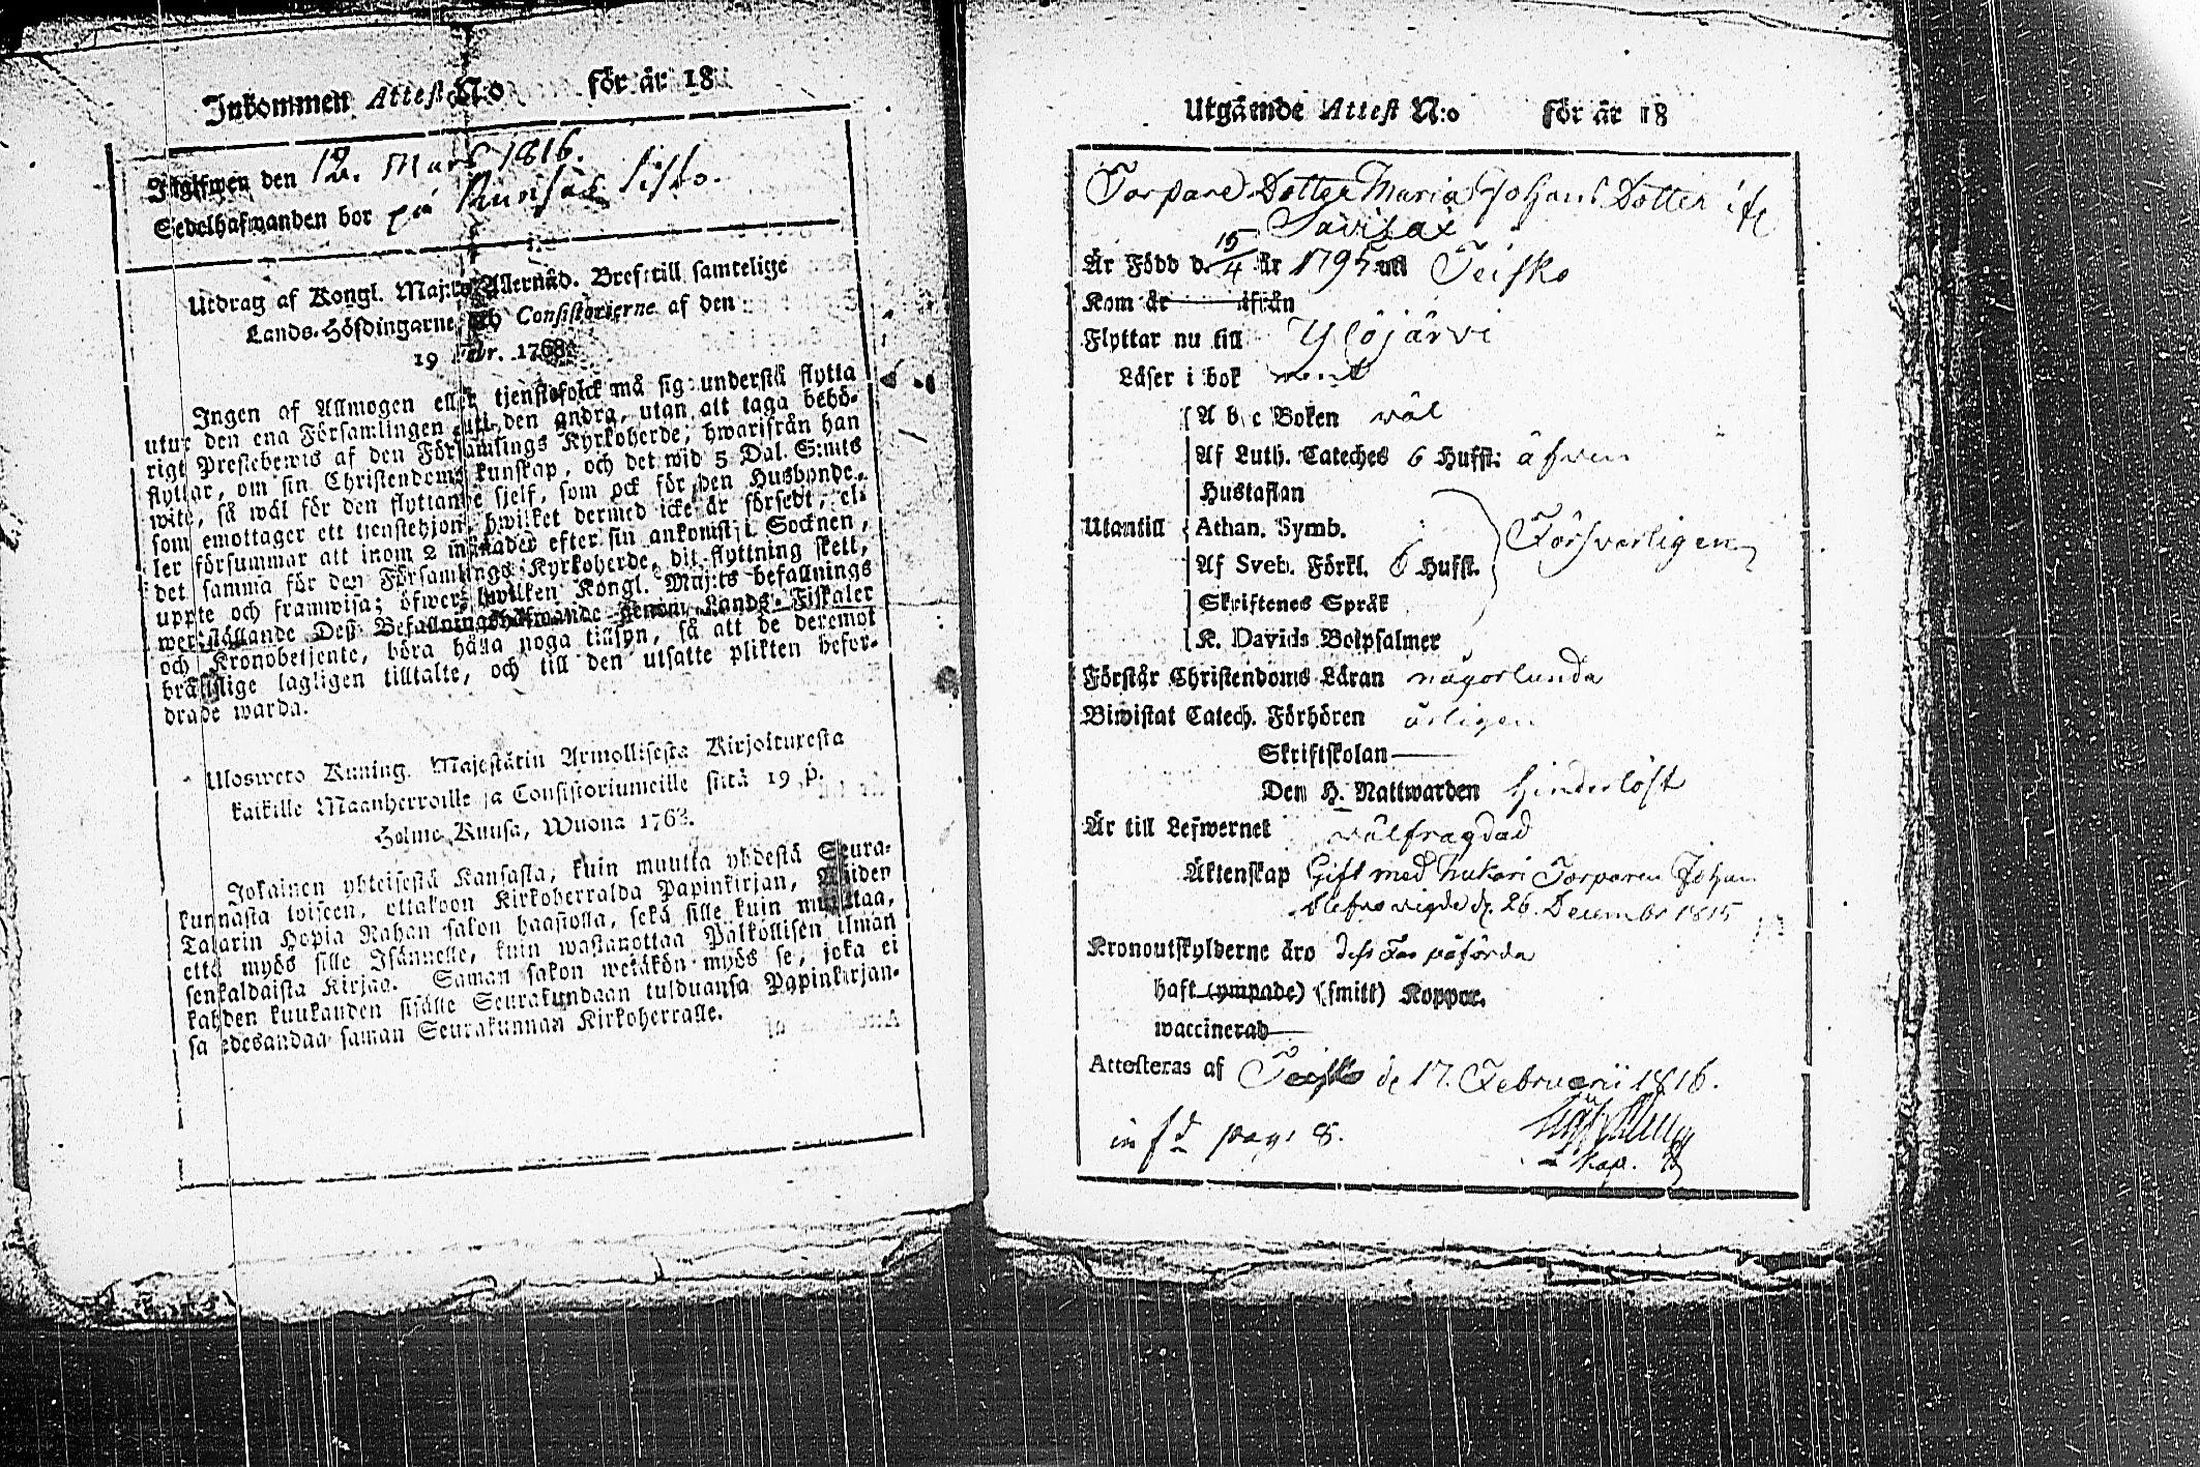 Inkommen Attest N:o för år 18
Inlefwen den 12. Mars 1816.
Sedelhafwanden bor på
Utdrag af Kongl. Maj:ts Allernåd. Bref till samtelige
Lands-Höfdingarne och Consistorierne af den
19 Febr. 1768.
Ingen af Allmogen eller tjenstefolck må sig understå flytta
utur den ena Församlingen uti den andra, utan att taga behö-
rigt Prestebewis af den Församlings Kyrkoherde, hwarifrån han
flyttar, om sin Christendoms kunskap, och det wid 5 Dal. S:mts
wite, så wäl för den flyttande sjelf, som ock för den Husbonde,
som emottager ett tjenstehjon, hwilket dermed icke är försedt, el-
ler försummar att inom 2 månader efter sin ankomst i Socknen,
det samma för den Församlings Kyrkoherde, dit flyttning skett,
uppte och framwisa; öfwer hwilken Kongl. Maj:ts befallnings
werkställande Deß Befallningshafwande genom Lands-Fiskaler
och Kronobetjente, böra hålla noga tillsyn, så att de deremot
bräßlige lagligen tilltalte, och till den utsatte plikten befor-
drade warda.
Ulosweto Kuning. Majestätin Armollisesta Kirjoituxesta
kaikille Maanherroille ja Consistoriumeille siitä 19 p.
Helme Kuusa, Wuona 1768.
Jokainen yhteisestä Kansasta, kuin muutta yhdestä Seura-
kunnasta toiseen, ottakoon Kirkoherralda Papinkirjan, Wiiden
Talarin Hopia Rahan sakon haastolla, sekä sille kuin muuttaa,
että myös sille Isännelle, kuin wastanottaa Palkollisen ilman
senkaldaista Kirjaa. Saman sakon wetäkön myös se, joka ei
kahden kuukauden sisälle Seurakundaan tulduansa Papinkirjan-
sa edesandaa saman Seurakunnan Kirkoherralle.
Utgående Attest N:o för år 18
Torpare Dotter Maria Johans Dotter ifr
Savilax
Är Född d. 15/4 år 1795 uti Teisko
Kom år ifrån
Flyttar nu till Ylöjärvi
Läser i bok
A b c Boken wäl
Af Luth. Cateches 6 Hufst: äfven
Hustaflan
Utantill Athan. Symb. Försvarligen
Af Sveb. Förkl. 6 Hufst.
Skriftenes Språk
K. Davids Botpsalmer
Förstår Christendoms Läran någorlunda
Biwistat Catech. Förhören årligen
Skriftskolan
Den H. Nattwarden hinderlöst
Är till Lefwernet wälfrägdad
Äktenskap Gift med Torparen Johan
vigde d. 26. December 1815
Kronoutskylderne äro påförda
haft (ympade) (smitt) Koppor.
waccinerad
Attesteras af Teisko d 17. Februarii 1816.
pag: 8.